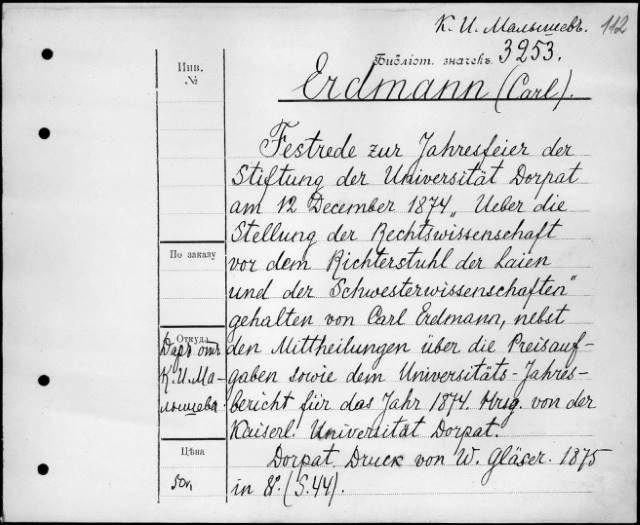 К. И. Малышевъ. 112
Библіот. значекъ 3253.
Erdmann (Carl).
Инв.
№
Festrede zur Jahresfeier der
Stiftung der Universität Dorpat
am 12 December 1874 „Ueber die
Stellung der Rechtswissenschaft
vor dem Richterstuhl der Laien
und der Schwesterwissenschaften"
gehalten von Carl Erdmann, nebst
den Mittheilungen über die Preisauf-
gaben sowie dem Universitäts-Jahres-
bericht für das Jahr 1874. Hrsg. von der
Kaiserl. Universität Dorpat.
Dorpat. Druck von W. Gläser. 1875
in 8º. (S. 44).
По заказу
Откуда
Даръ отъ
К. И. Ма-
лышева
Цѣна
50к.